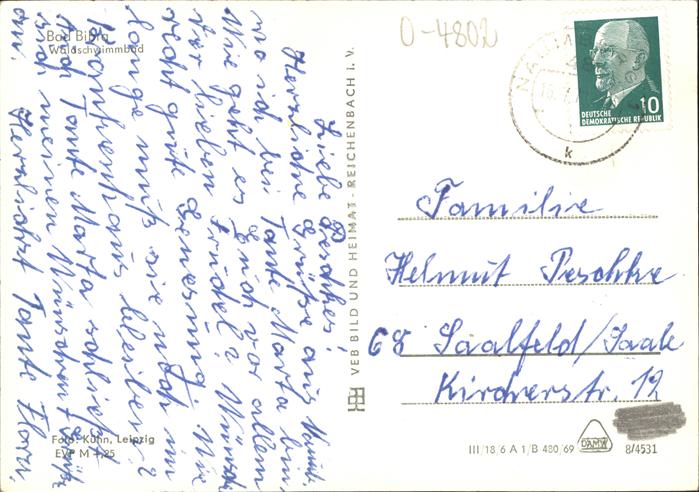 Bad Bibra
Waldschwimmbad
0-4802
Liebe Peschkes!
Herzliche Grüße aus
wo ich bei Tante Marta bin.
Wie geht es Euch vor allem
der lieben Trudel? Wünsche
recht gute Genesung. Wie
lange muß sie noch im
Krankenhaus bleiben?
Auch Tante Marta schließt
sich meinen Wünschen u. Grüße
an. Herzlichst Tante Flora.
Foto: Kühn, Leipzig
EVP M -,25
VEB BILD UND HEIMAT - REICHENBACH I. V.
NAUMBURG
k
10
DEUTSCHE
DEMOKRATISCHE REPUBLIK
Familie
Helmut Peschke
68 Saalfeld/Saale
Kirchnerstr. 12
III/18/6 A 1/B 480/69
DAMW
8/4531